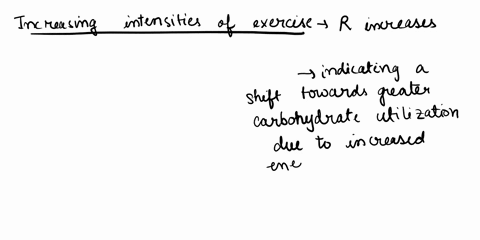 Increasing intensities of exercise → R increases
→ indicating a
shift towards greater
carbohydrate utilization
due to increased
ene